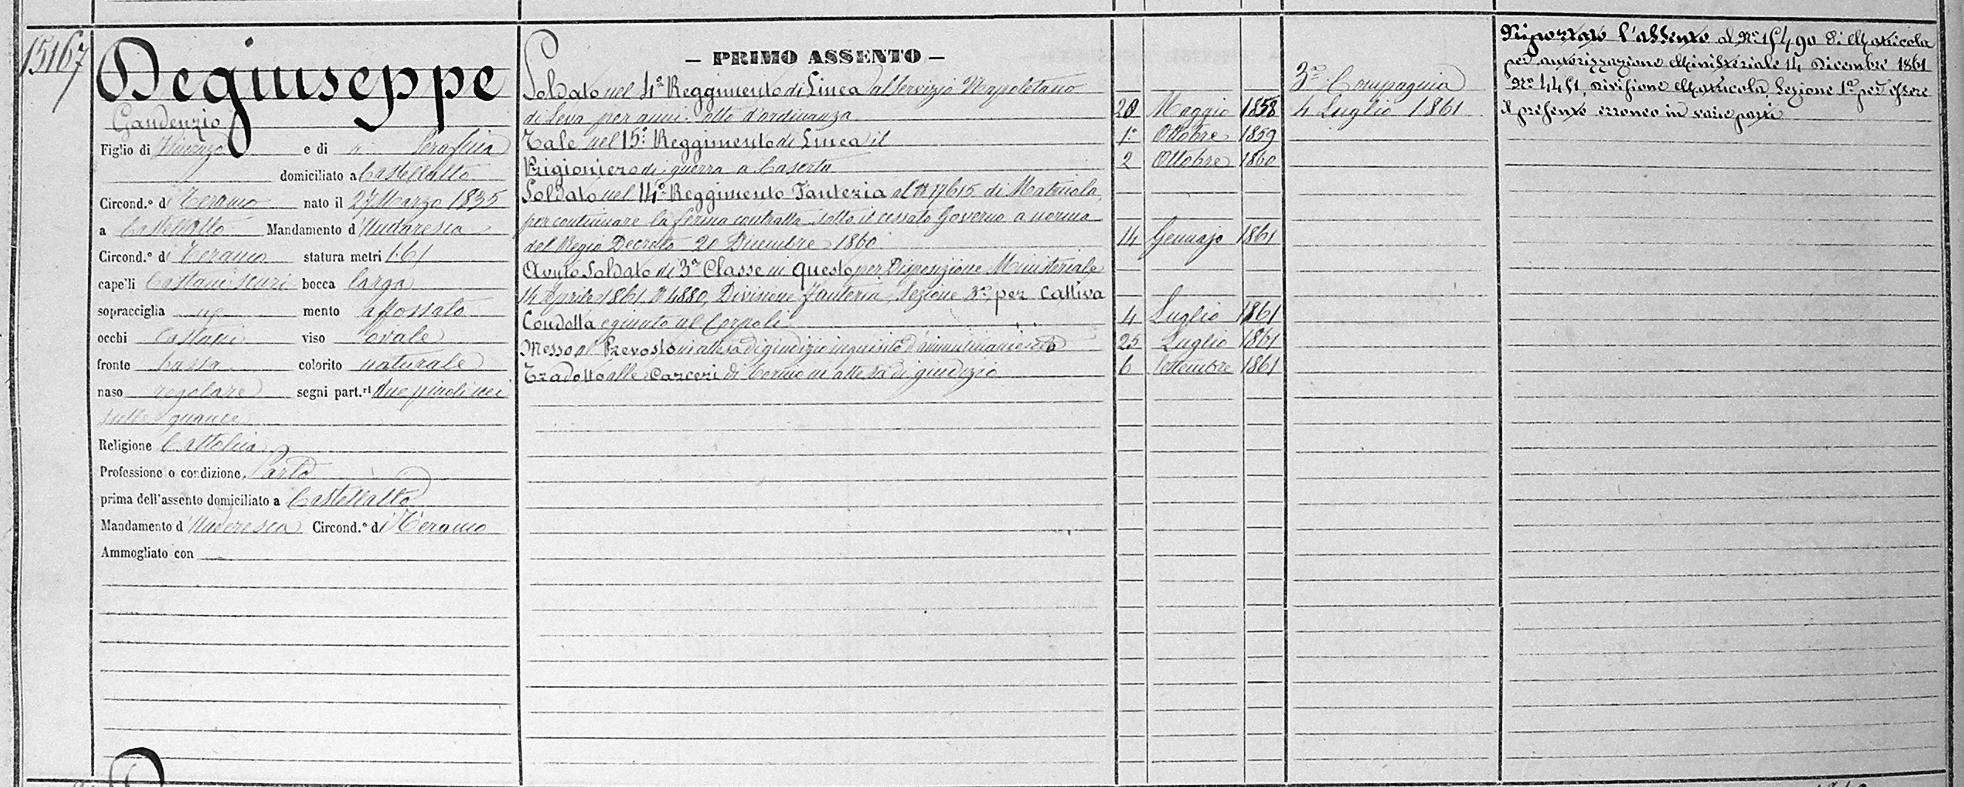 15167
Degiuseppe
Gaudenzio
Figlio di Vincenzo e di Serafina
domiciliato a Castellalto
Circond.º di Teramo nato il 27 Marzo 1835
a Castellalto Mandamento d Nudaresca
Circond.º di Teramo statura metri 1.61
capelli Castani scuri bocca larga
sopracciglia mento affossato
occhi Castani viso ovale
fronte bassa colorito naturale
naso regolare segni part.ri due piccoli nei
sulle guance
Religione Cattolica
Professione o condizione, Sarto
prima dell'assento domiciliato a Castellalto
Mandamento d Nuderesca Circond.º di Teramo
Ammogliato con
— PRIMO ASSENTO —
Soldato nel 4º Reggimento di Linea al servizio Napoletano
di Leva per anni otto d'ordinanza 20 Maggio 1858
Tale nel 15º Reggimento di Linea il 1º Ottobre 1859
Prigioniero di guerra a Caserta 2 Ottobre 1860
Soldato nel 14º Reggimento Fanteria al Nº 17615 di Matricola
per continuare la ferma contratta sotto il cessato Governo a norma
del Regio Decreto 20 Dicembre 1860 14 Gennajo 1861
Avuto Soldato di 3ª Classe in questo per Disposizione Ministeriale
14 Aprile 1861 Nº 4880, Divisione Fanteria, Sezione 3ª per Cattiva
Condotta e giunto al Corpo li 4 Luglio 1861
Messo al Prevosto in attesa di giudizio inquisito d'ammutinamento 25 Luglio 1861
Tradotto alle Carceri di Fermo in attesa di giudizio 6 Settembre 1861
3ª Compagnia
4 Luglio 1861
Riportato l'assento al Nº 15490 di Matricola
per autorizzazione Ministeriale 14 Dicembre 1861
Nº 4451, Divisione Matricola, Sezione 1ª per essere
il presente erroneo in varie parti